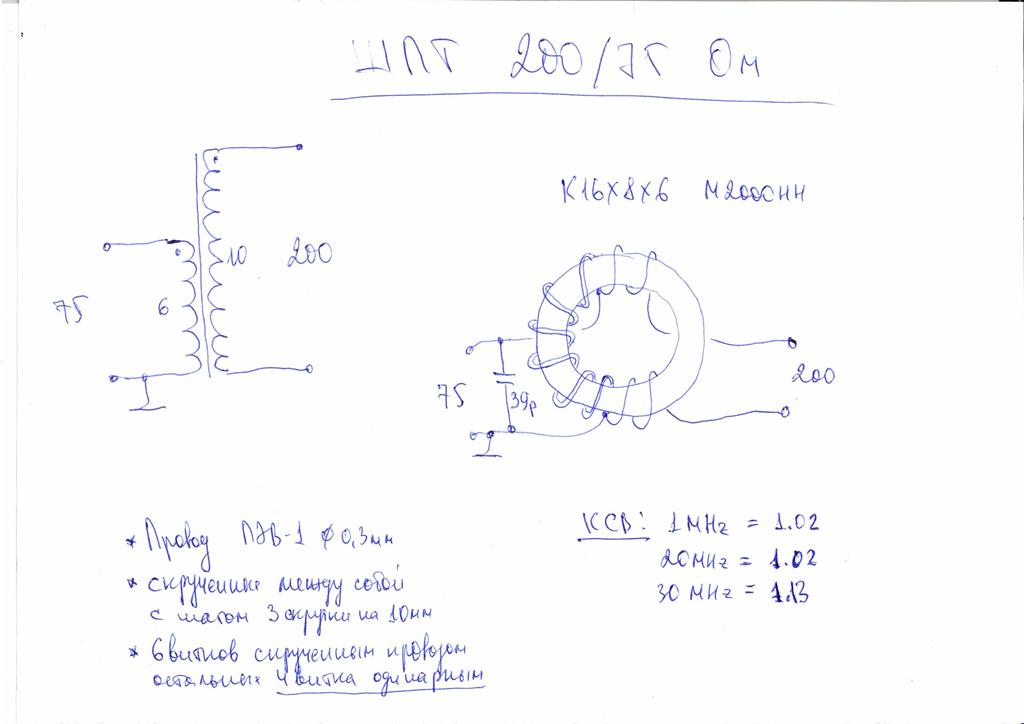 ШПТ 200/75 Ом
10 200
75 6
К16х8х6 М2000НН
75 39p 200
* Провод ПЭВ-1 ϕ0,3мм
* скрученные между собой
с шагом 3 скрутки на 10мм
* 6 витков скрученным проводом
остальные 4 витка одинарным
КСВ: 1MHz = 1.02
20MHz = 1.02
30MHz = 1.13